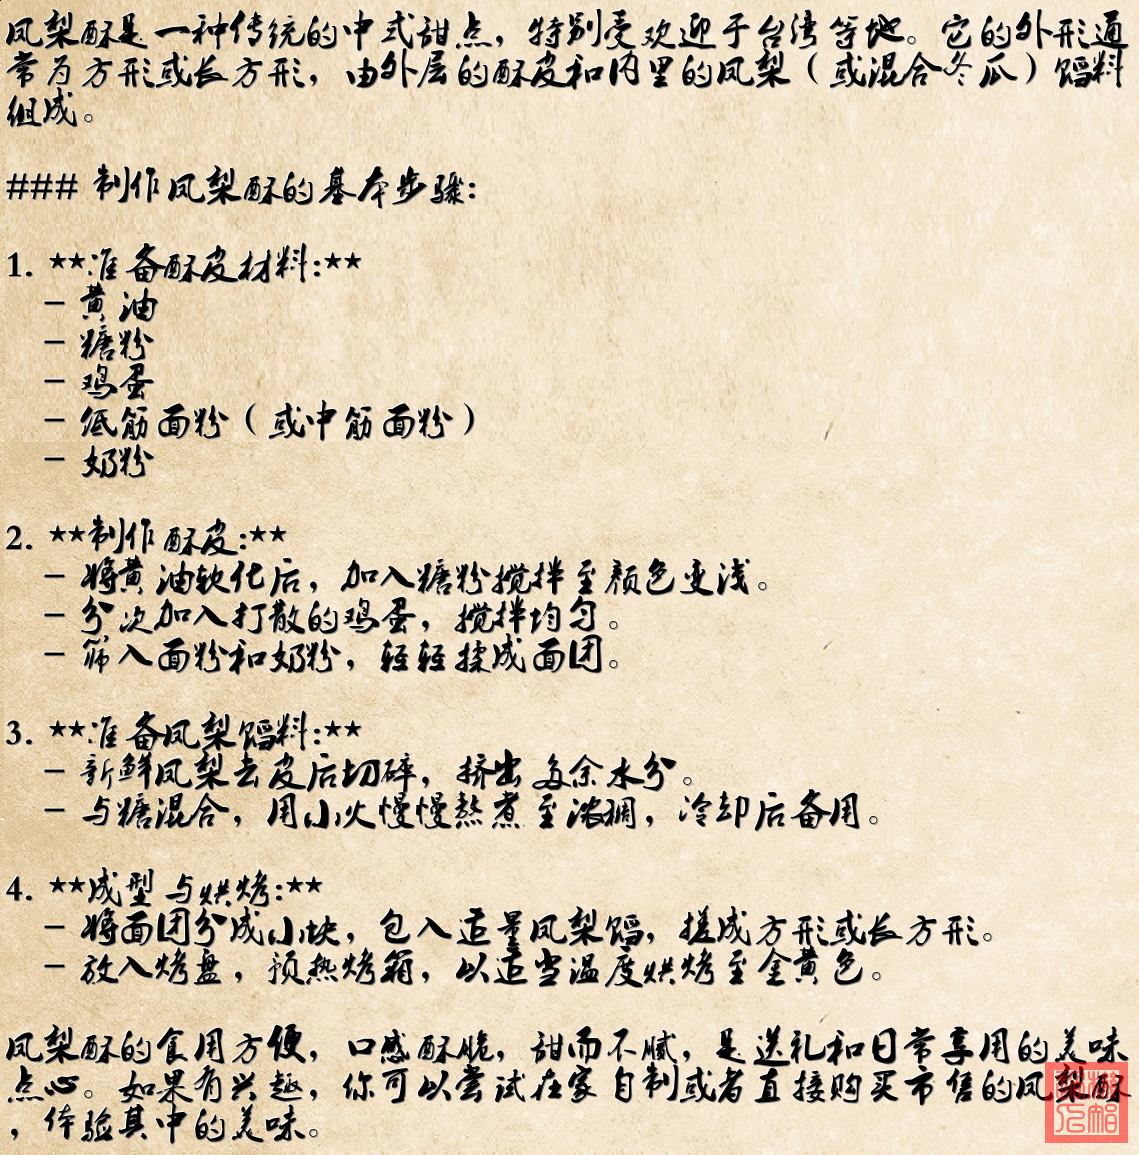 凤梨酥是一种传统的中式甜点，特别受欢迎于台湾等地。它的外形通
常为方形或长方形，由外层的酥皮和内里的凤梨（或混合冬瓜）馅料
组成。
### 制作凤梨酥的基本步骤:
1. **准备酥皮材料:**
- 黄油
- 糖粉
- 鸡蛋
- 低筋面粉（或中筋面粉）
- 奶粉
2. **制作酥皮:**
- 将黄油软化后，加入糖粉搅拌至颜色变浅。
- 分次加入打散的鸡蛋，搅拌均匀。
- 筛入面粉和奶粉，轻轻揉成面团。
3. **准备凤梨馅料:**
- 新鲜凤梨去皮后切碎，挤出多余水分。
- 与糖混合，用小火慢慢熬煮至浓稠，冷却后备用。
4. **成型与烘烤:**
- 将面团分成小块，包入适量凤梨馅，搓成方形或长方形。
- 放入烤盘，预热烤箱，以适当温度烘烤至金黄色。
凤梨酥的食用方便，口感酥脆，甜而不腻，是送礼和日常享用的美味
点心。如果有兴趣，你可以尝试在家自制或者直接购买市售的凤梨酥
，体验其中的美味。